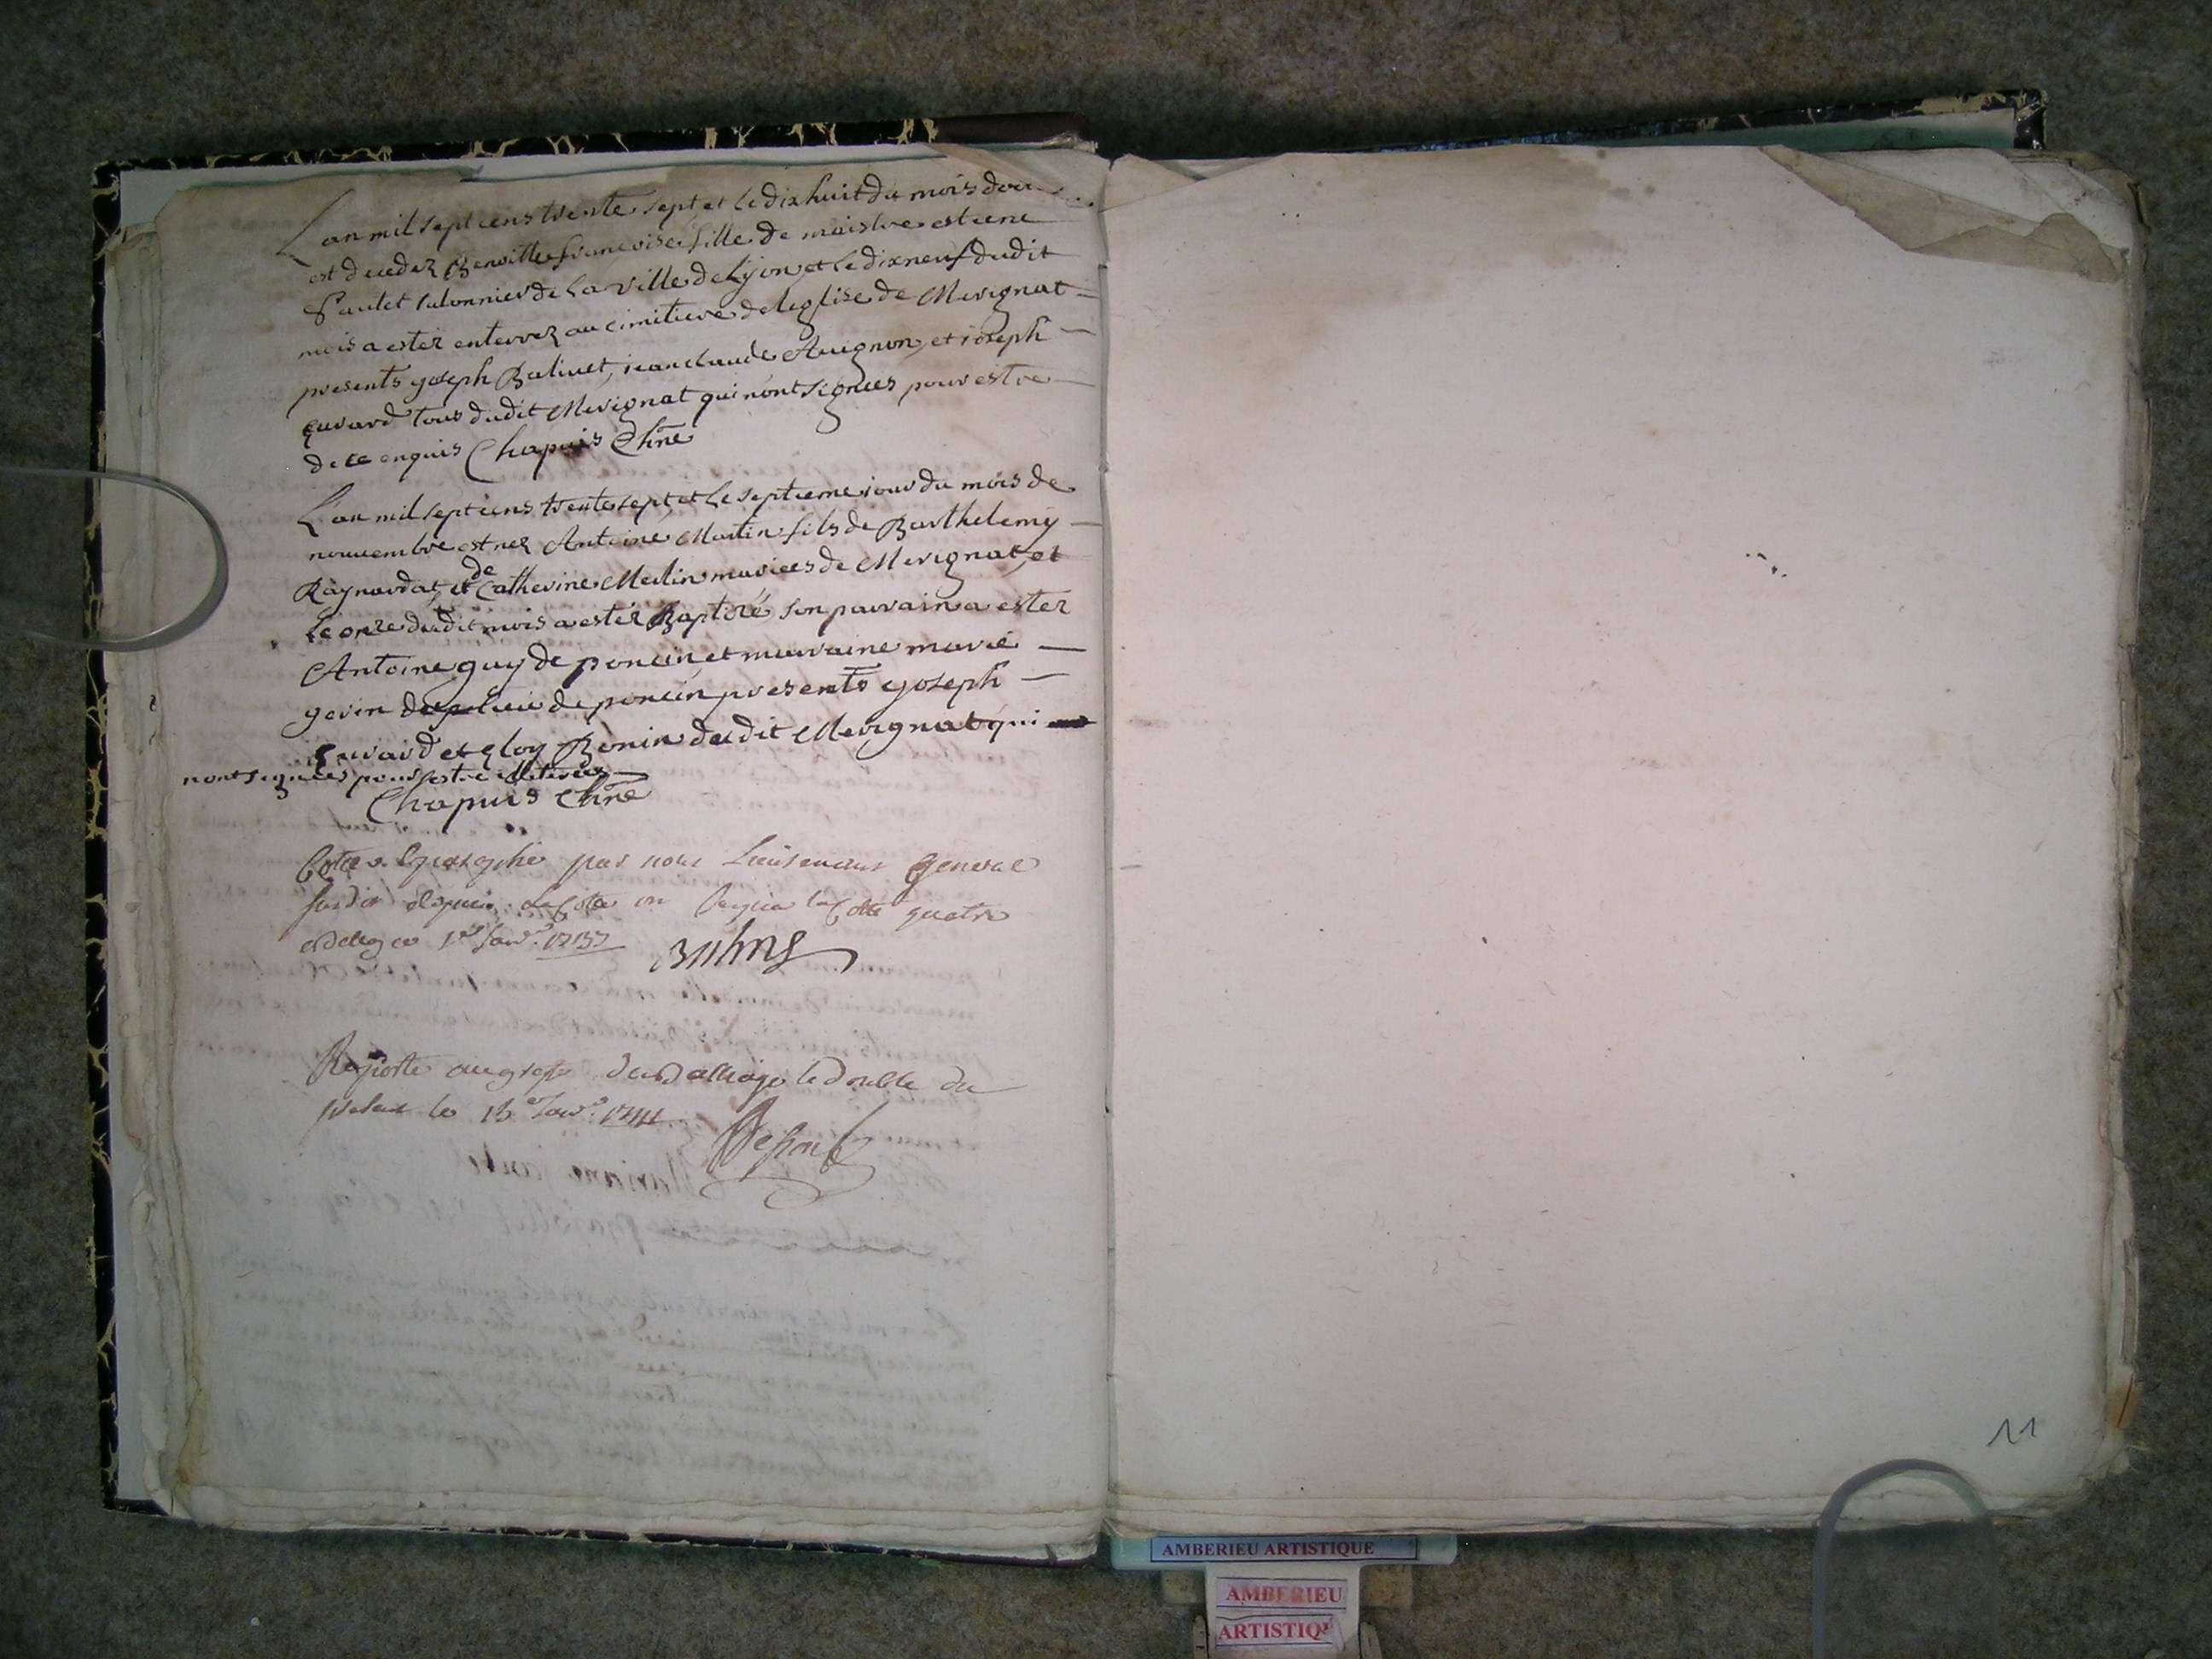 Lan mil sept cens trente sept et le dixhuit du mois
est decedez Benoitte francoise fille de maistre estiene
Paulet de la ville de Lyon et le dixneuf dudit
mois a ester enterrez au cimitiere de leglise de Merignat
presents joseph Balivet, jean claude Auignon, et ioseph
euvard tous dudit Merignat qui nont signees pour estre
de ce enquis Chapuis Chne
L'an mil sept cens trente sept et le septieme iour du mois de
nouuembre est nez Antoine Martin fils de Barthelemy
Raynardat, et de Catherine Merlin mariees de Merignat, et
le onze dudit mois a ester Baptizé son parrain a ester
Antoine guy de poncin et marraine marie
gevin de poncin presents joseph
Euvard et Eloy Bonin dudit Merignat qui
nont signees pour estre illiterees
Chapuis Chne
Cotte & paraphé par nous Lieutenant General
depuis la Cotte un jusqua la Cotte quatre
1er Janv. 1737
au greffe du Balliage le double du
le 13 Janv.
11
AMBERIEU ARTISTIQUE
AMBERIEU
ARTISTIQ